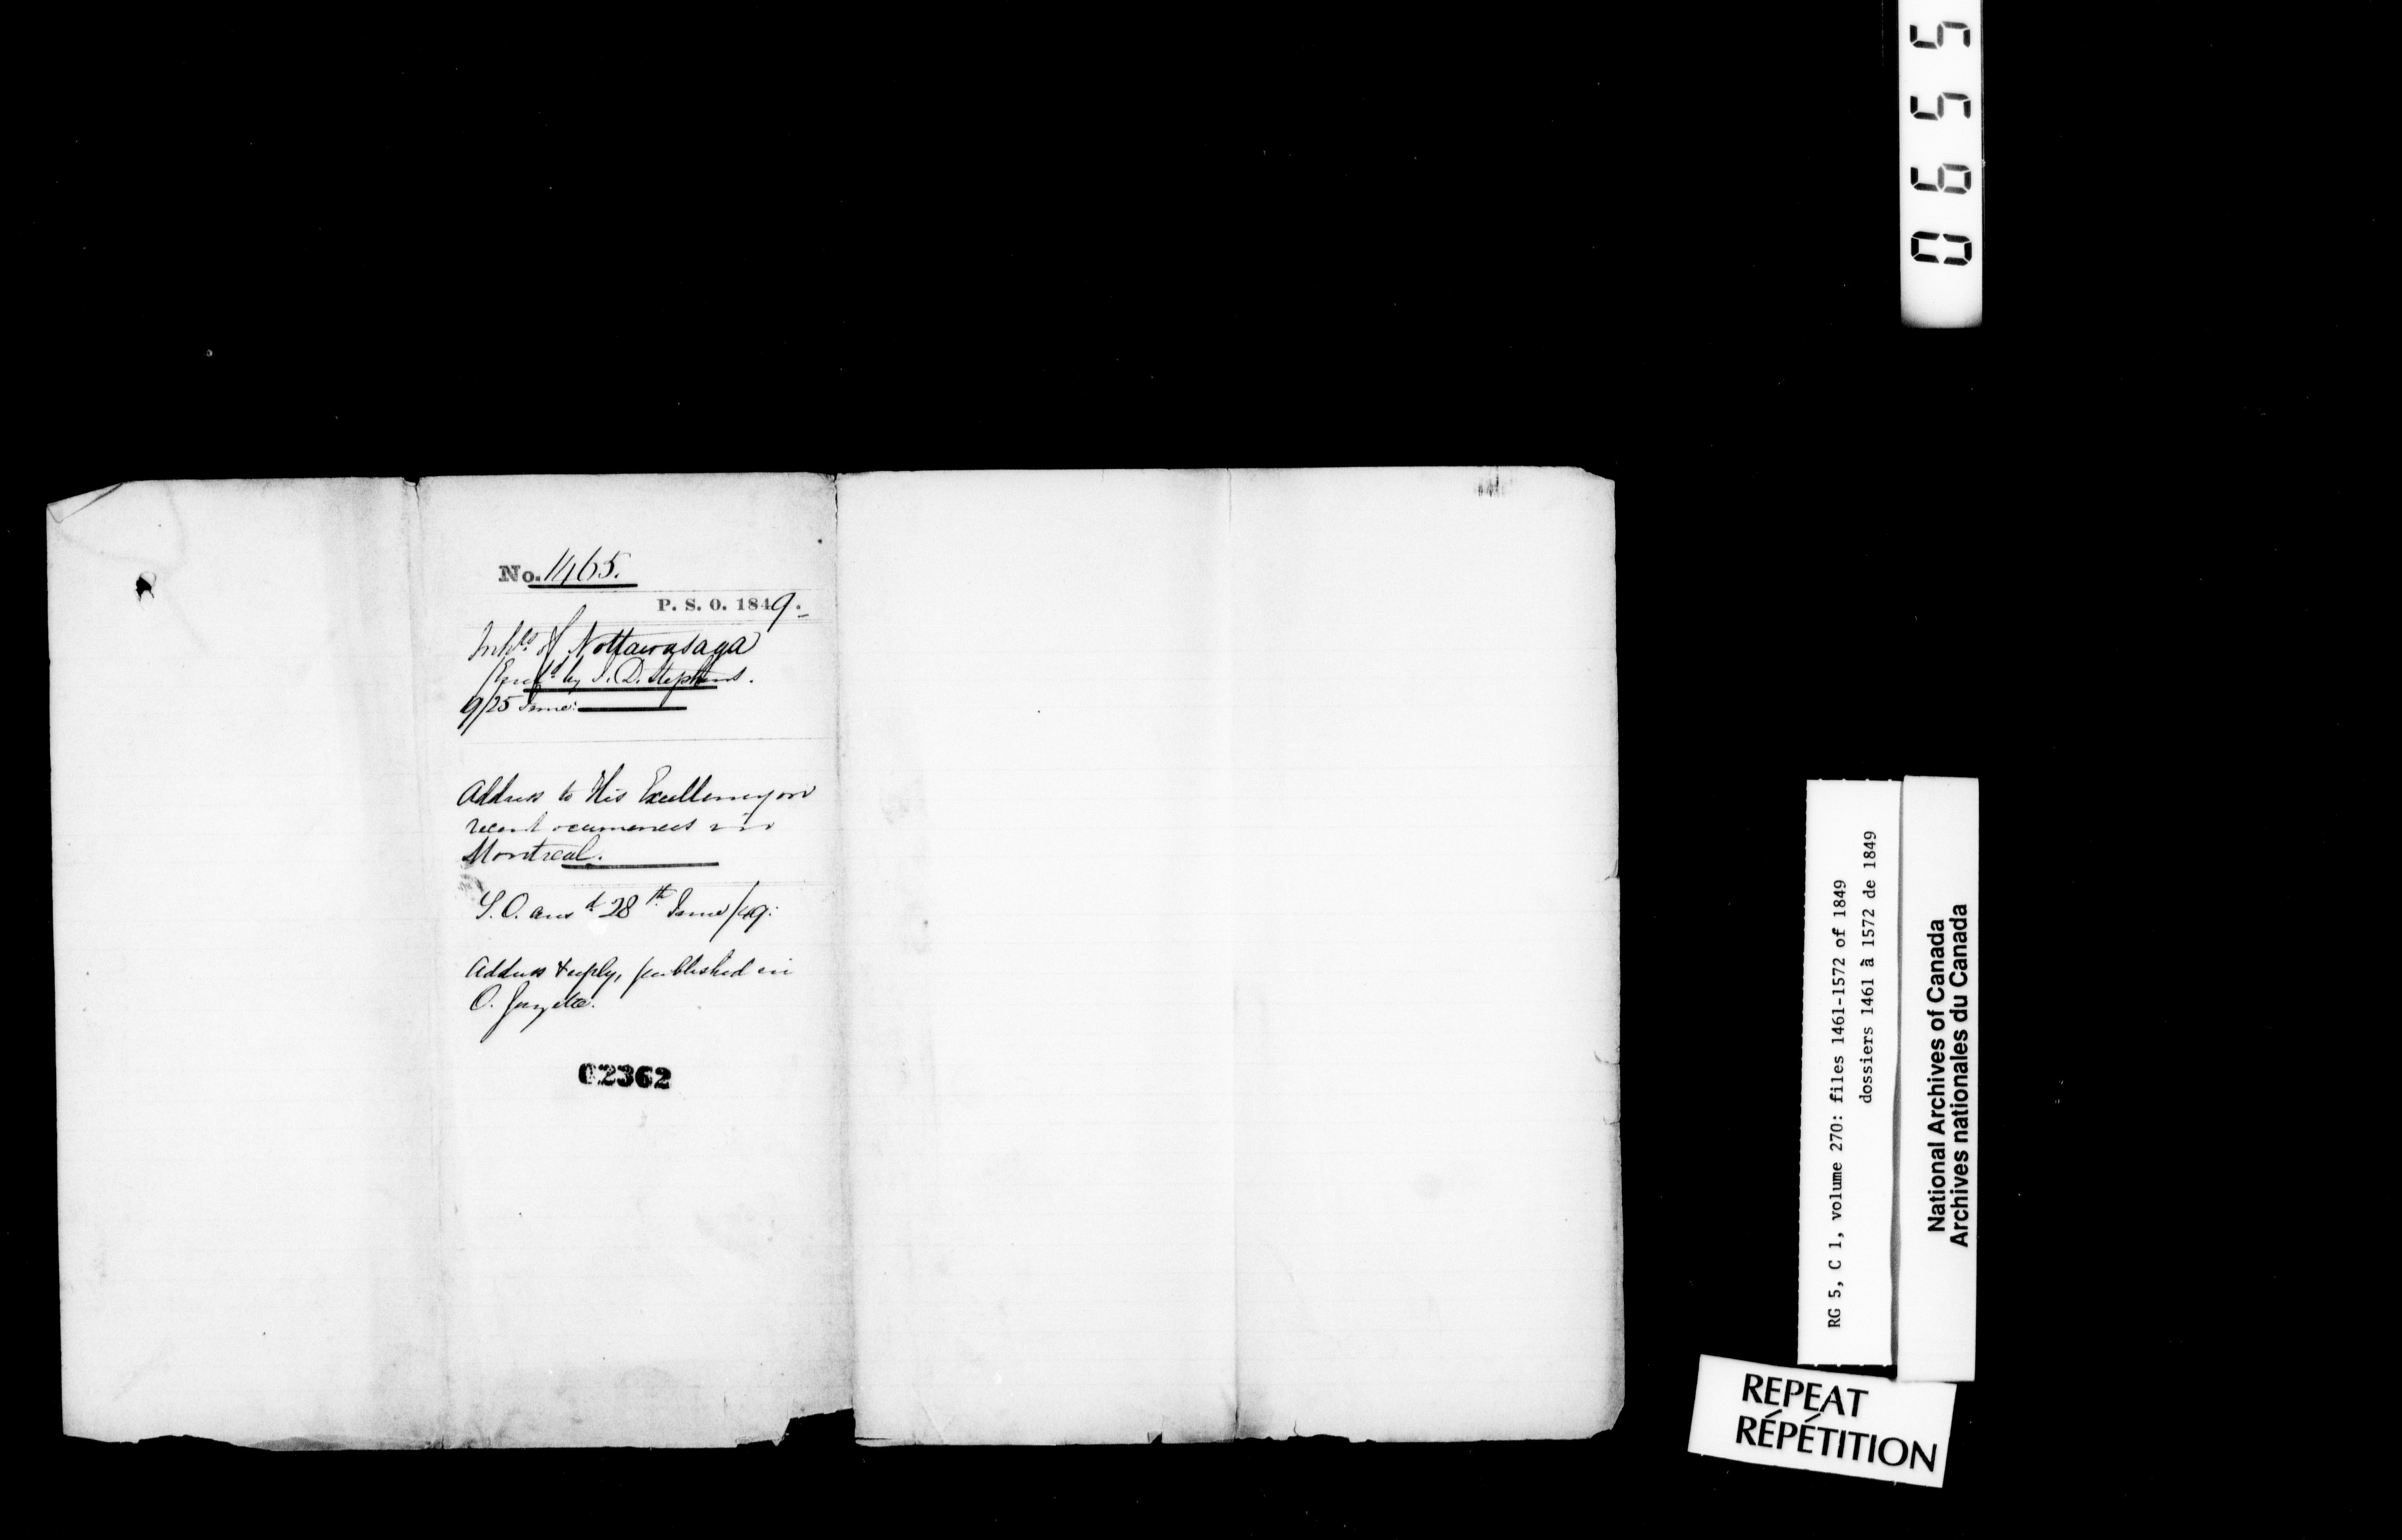 No. 1465.
P. S. O. 1849.
Inhts. of Nottawasaga
by J. D. Stephens.
9/25 June.
Address to His Excellency on
recent occurrences in
Montreal.
S. O. ansd. 28th. June/49.
Address & reply, published in
O. Gazette.
02362
0655
RG 5, C 1, volume 270: files 1461-1572 of 1849
dossiers 1461 à 1572 de 1849
National Archives of Canada
Archives nationales du Canada
REPEAT
RÉPÉTITION